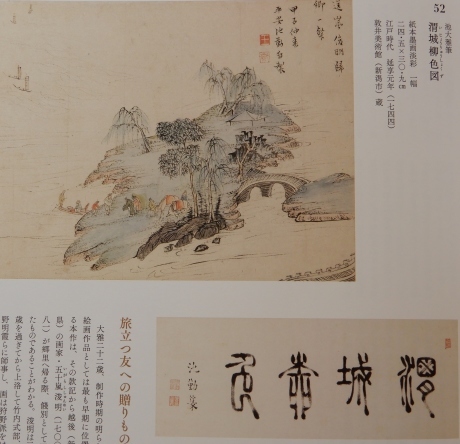 52
池大雅筆
渭城柳色図
いじょうりゅうしょくず
紙本墨画淡彩　一幅
二四・五×三〇・九㎝
江戸時代　延享元年(一七四四)
敦井美術館(新潟市)蔵
甲子仲夏
渭城柳色
池勤篆
旅立つ友への贈りもの
大雅二十二歳、制作時期の明ら
絵画作品としては最も早期に位
る本作は、その款記から越後(新
県)の画家・五十嵐浚明(一七〇
八一)が郷里へ帰る際、餞別として
たものであることがわかる。浚明は
歳を過ぎてから上洛して竹内式部、
野明霞らに師事し、画は狩野派を